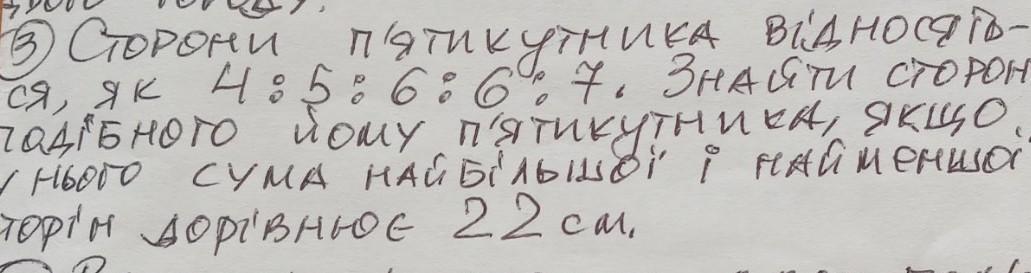 ③ Сторони п'ятикутника відносять-
ся, як 4:5:6:6:7. Знайти сторон
подібного йому п'ятикутника, якщо
у нього сума найбільшої і найменшої
торін дорівнює 22 см.